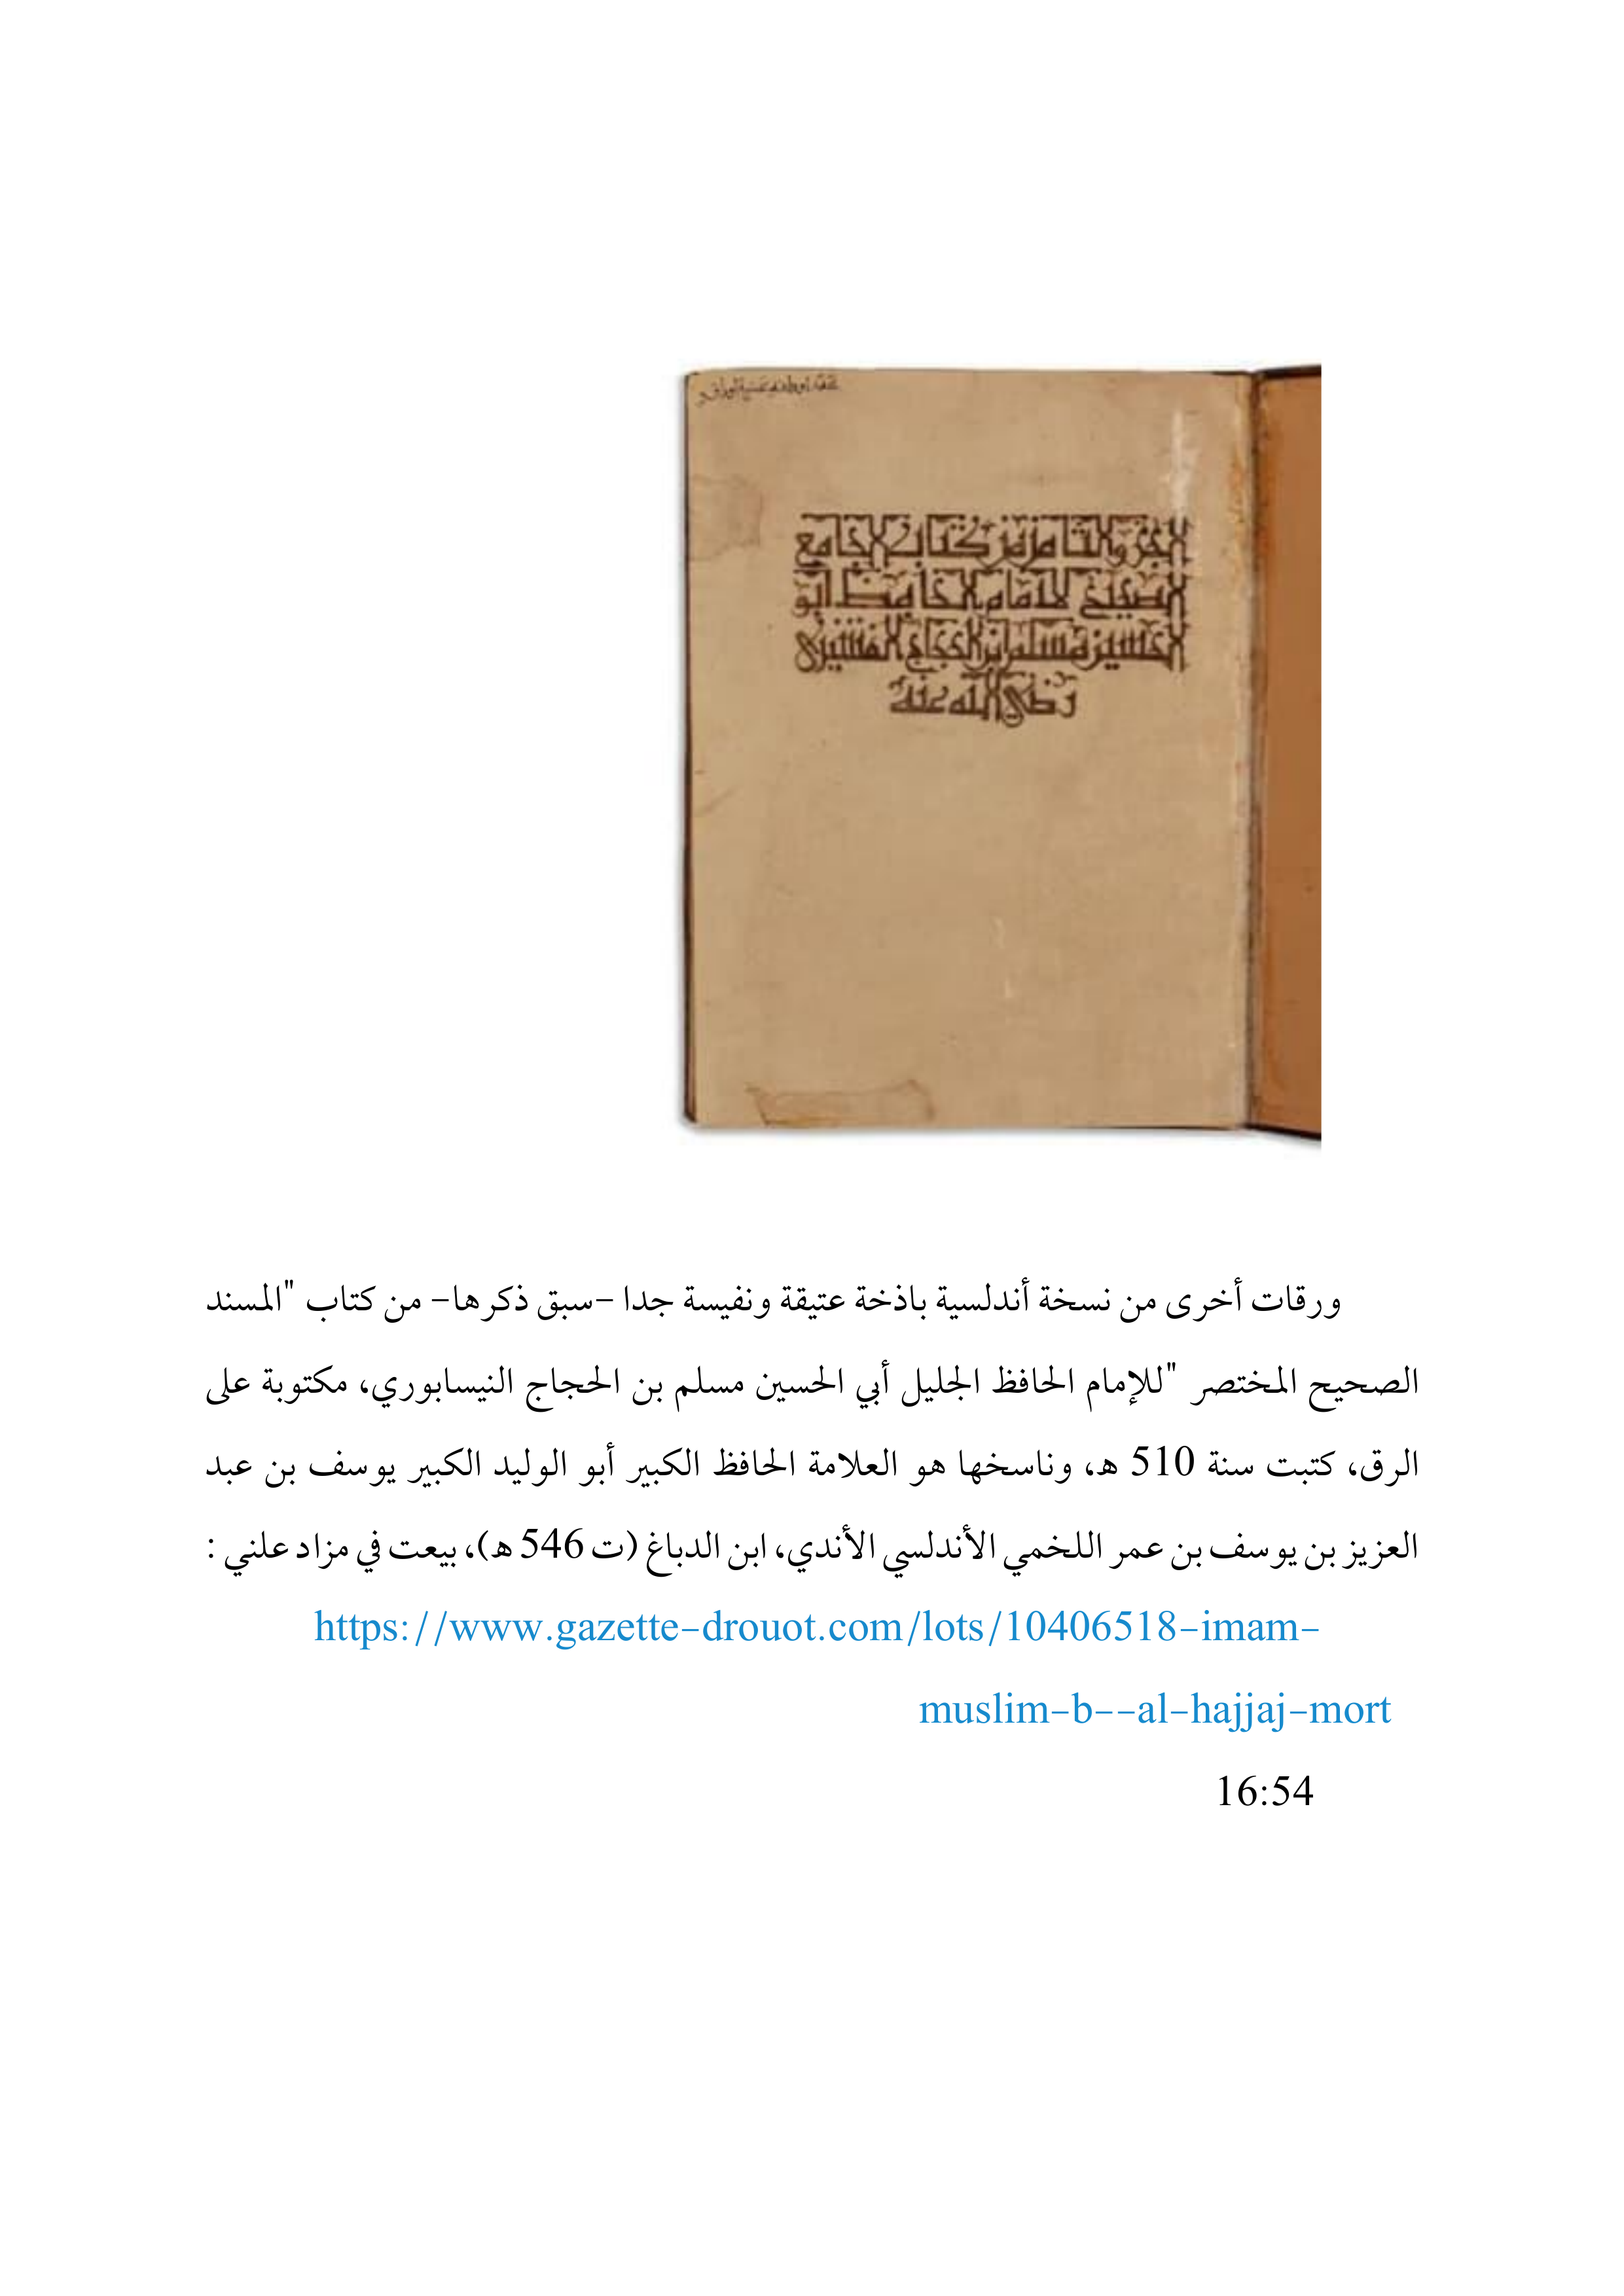 الجزو الثامن من كتاب الجامع
الصحيح للامام الحافظ ابو
الحسين مسلم ابن الحجاج القشيري
رضي الله عنه
ورقات أخرى من نسخة أندلسية باذخة عتيقة ونفيسة جدا -سبق ذكرها- من كتاب "المسند
الصحيح المختصر "للإمام الحافظ الجليل أبي الحسين مسلم بن الحجاج النيسابوري، مكتوبة على
الرق، كتبت سنة 510 هـ، وناسخها هو العلامة الحافظ الكبير أبو الوليد الكبير يوسف بن عبد
العزيز بن يوسف بن عمر اللخمي الأندلسي الأندي، ابن الدباغ (ت 546 هـ)، بيعت في مزاد علني :
https://www.gazette-drouot.com/lots/10406518-imam-
muslim-b--al-hajjaj-mort
16:54